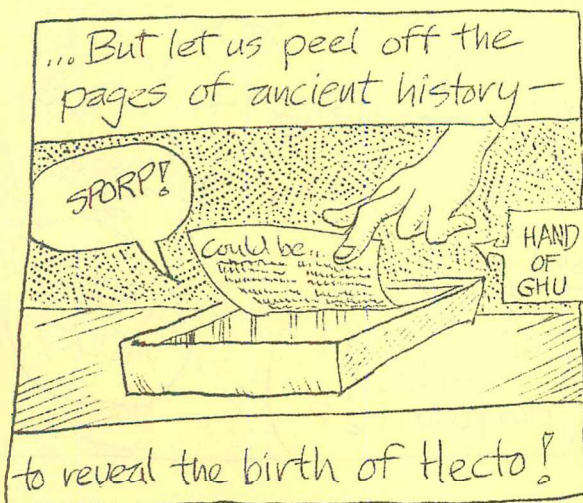 ... But let us peel off the
pages of ancient history —
SPORP!
Could be...
HAND
OF
GHU
to reveal the birth of Hecto!